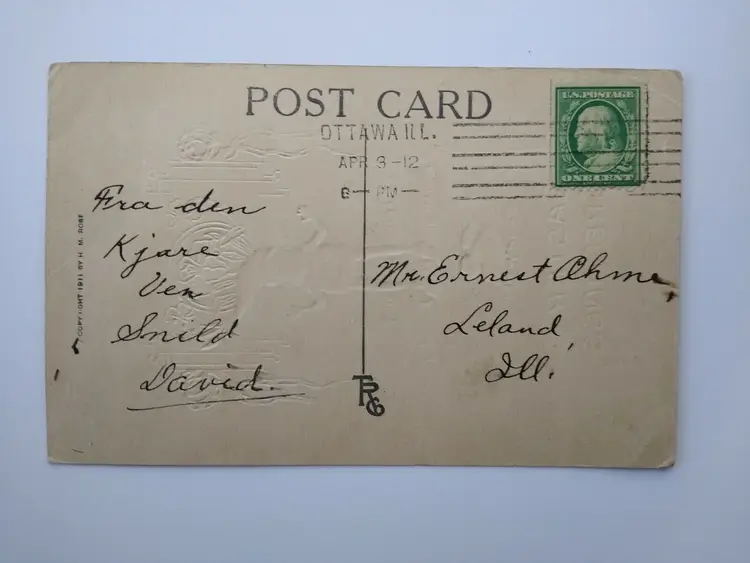 POST CARD
OTTAWA ILL.
APR 3-12
6-PM-
U.S. POSTAGE
ONE CENT
Fra den
Kjare
Ven
Snild
David.
Mr. Ernest Ohme
Leland,
Ill.
COPYRIGHT 1911 BY H. M. ROSE